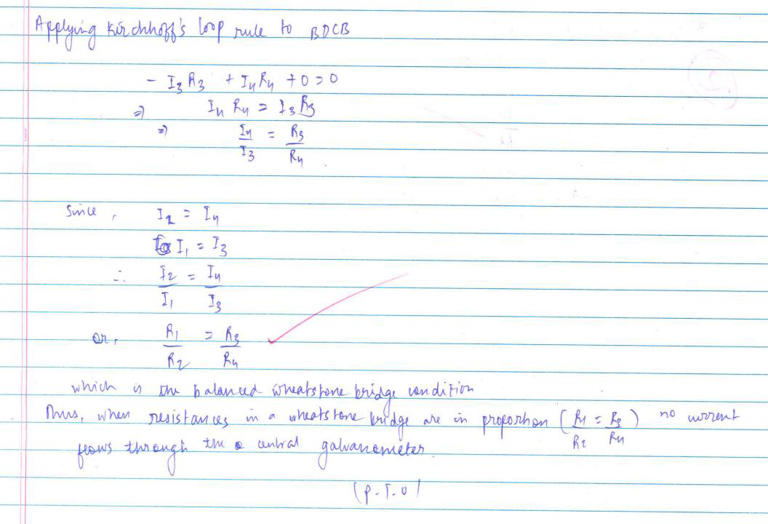 Applying Kirchhoff's loop rule to BDCB
- I₃R₃ + I₄R₄ + 0 = 0
⇒ I₄R₄ = I₃R₃
⇒ I₄/I₃ = R₃/R₄
Since, I₂ = I₄
I₁ = I₃
∴ I₂/I₁ = I₄/I₃
or, R₁/R₂ = R₃/R₄
which is the balanced wheatstone bridge condition
Thus, when resistances in a wheatstone bridge are in proportion (R₁/R₂ = R₃/R₄) no current
flows through the central galvanometer.
(P.T.O)